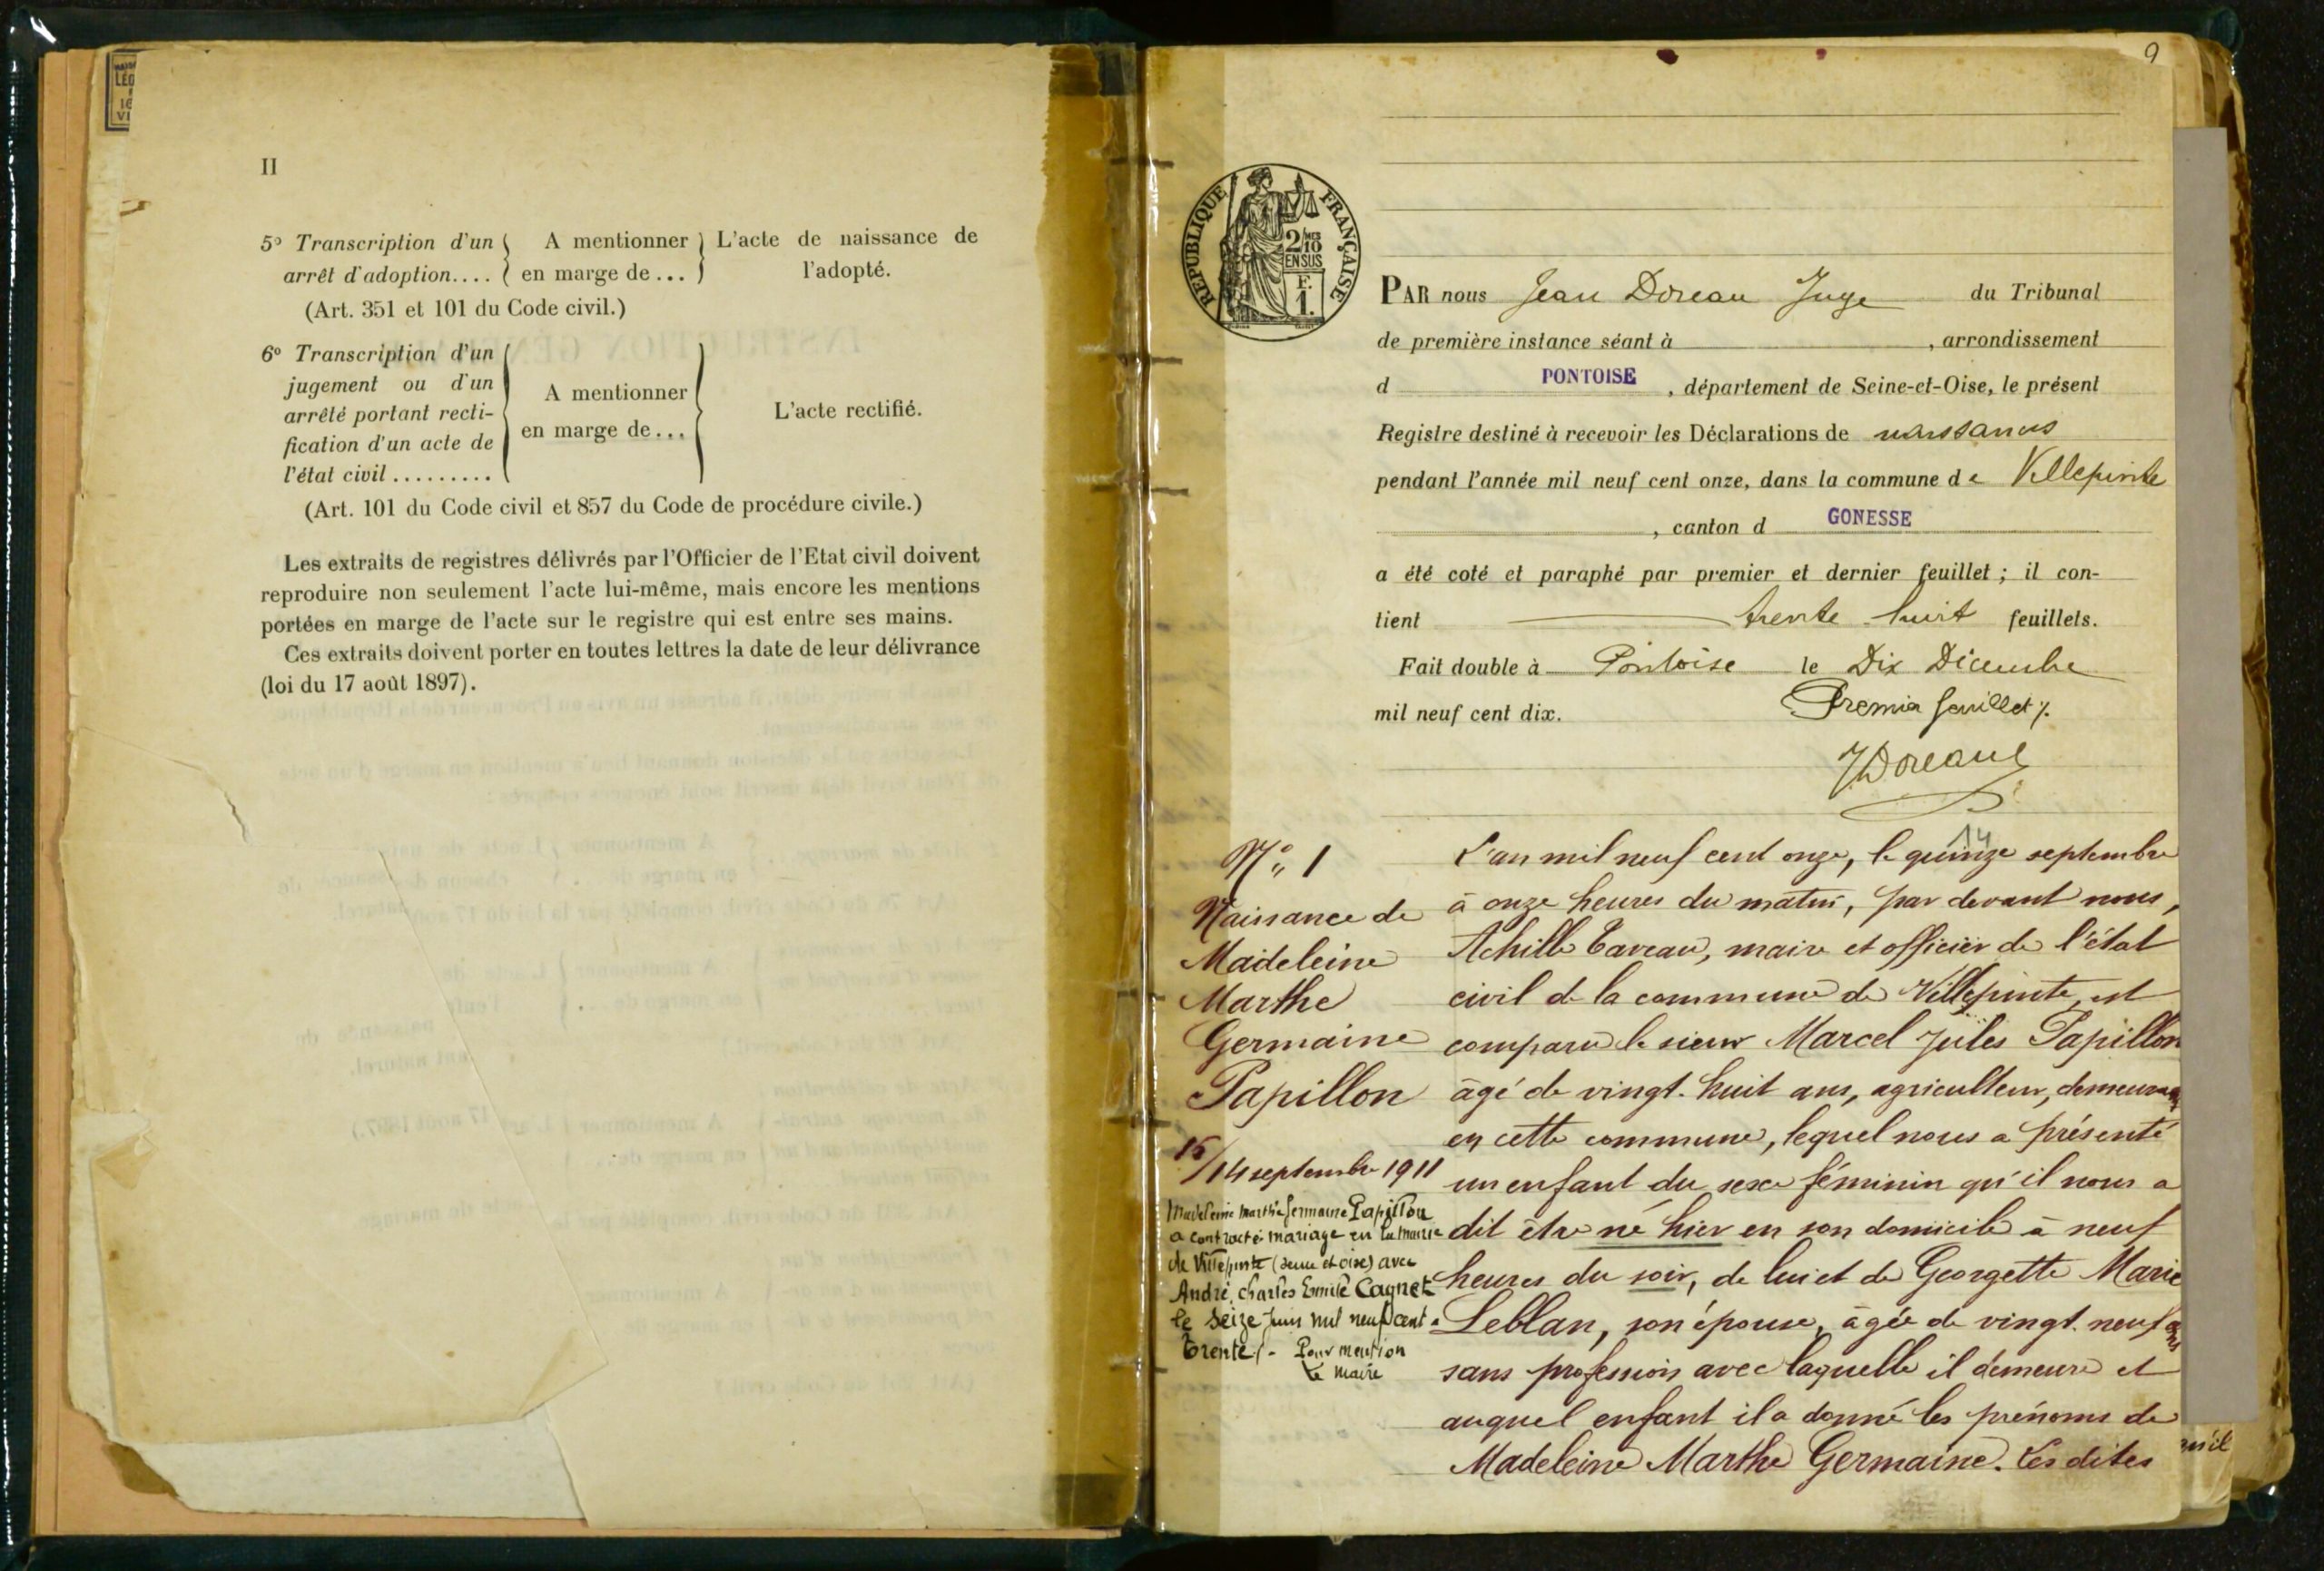 II
5° Transcription d'un arrêt d'adoption.... A mentionner en marge de... L'acte de naissance de l'adopté.
(Art. 351 et 101 du Code civil.)
6° Transcription d'un jugement ou d'un arrêté portant recti-fication d'un acte de l'état civil ......... A mentionner en marge de... L'acte rectifié.
(Art. 101 du Code civil et 857 du Code de procédure civile.)
Les extraits de registres délivrés par l'Officier de l'Etat civil doivent
reproduire non seulement l'acte lui-même, mais encore les mentions
portées en marge de l'acte sur le registre qui est entre ses mains.
Ces extraits doivent porter en toutes lettres la date de leur délivrance
(loi du 17 août 1897).
9
RÉPUBLIQUE FRANÇAISE
2/10 MES
EN SUS
F.
1.
PAR nous Jean Doreau Juge du Tribunal
de première instance séant à , arrondissement
d PONTOISE , département de Seine-et-Oise, le présent
Registre destiné à recevoir les Déclarations de naissances
pendant l'année mil neuf cent onze, dans la commune de Villepinte
, canton d GONESSE
a été coté et paraphé par premier et dernier feuillet ; il con-
tient trente huit feuillets.
Fait double à Pontoise le Dix Décembre
mil neuf cent dix. Premier feuillet %.
JDoreau
N° 1
Naissance de
Madeleine
Marthe
Germaine
Papillon
15/14 septembre 1911
Madeleine Marthe Germaine Papillon
a contracté mariage en la mairie
de Villepinte (Seine et Oise) avec
André, Charles Emile Cagnet
le seize juin mil neuf cent
trente /- Pour mention
Le maire
14
L'an mil neuf cent onze, le quinze septembre
à onze heures du matin, par devant nous,
Achille Taveau, maire et officier de l'état
civil de la commune de Villepinte, est
comparu le sieur Marcel Jules Papillon
âgé de vingt-huit ans, agriculteur, demeurant
en cette commune, lequel nous a présenté
un enfant du sexe féminin qu'il nous a
dit être né hier en son domicile à neuf
heures du soir, de lui et de Georgette Marie
Leblan, son épouse, âgée de vingt-neuf ans
sans profession avec laquelle il demeure et
auquel enfant il a donné les prénoms de
Madeleine Marthe Germaine. Les dites